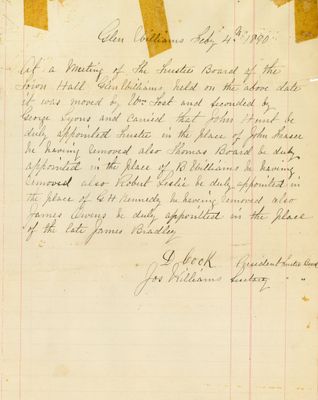 Glen Williams Feby 4th 1890
At a Meeting of the Trustee Board of the
Town Hall Glen Williams, held on the above date
it was moved by Wm Tost and Seconded by
George Lyons and Carried that John Hunt be
duly appointed Trustee in the place of John
he having removed also Thomas Board be duly
appointed in the place of B Williams he having
removed also Robert Leslie be duly appointed in
the place of G H Kennedy he having removed also
James Owens be duly appointed in the place
of the late James Bradley
D Cook President Trustee Board
Jos Williams Secretary " "